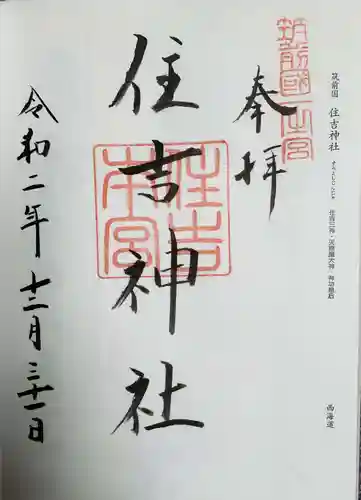 筑前国 住吉神社 すみよしじんじゃ 住吉三神・天照皇大神・神功皇后
西海道
筑前國一之宮
奉拝
住吉神社
住吉本宮
令和二年十二月三十一日